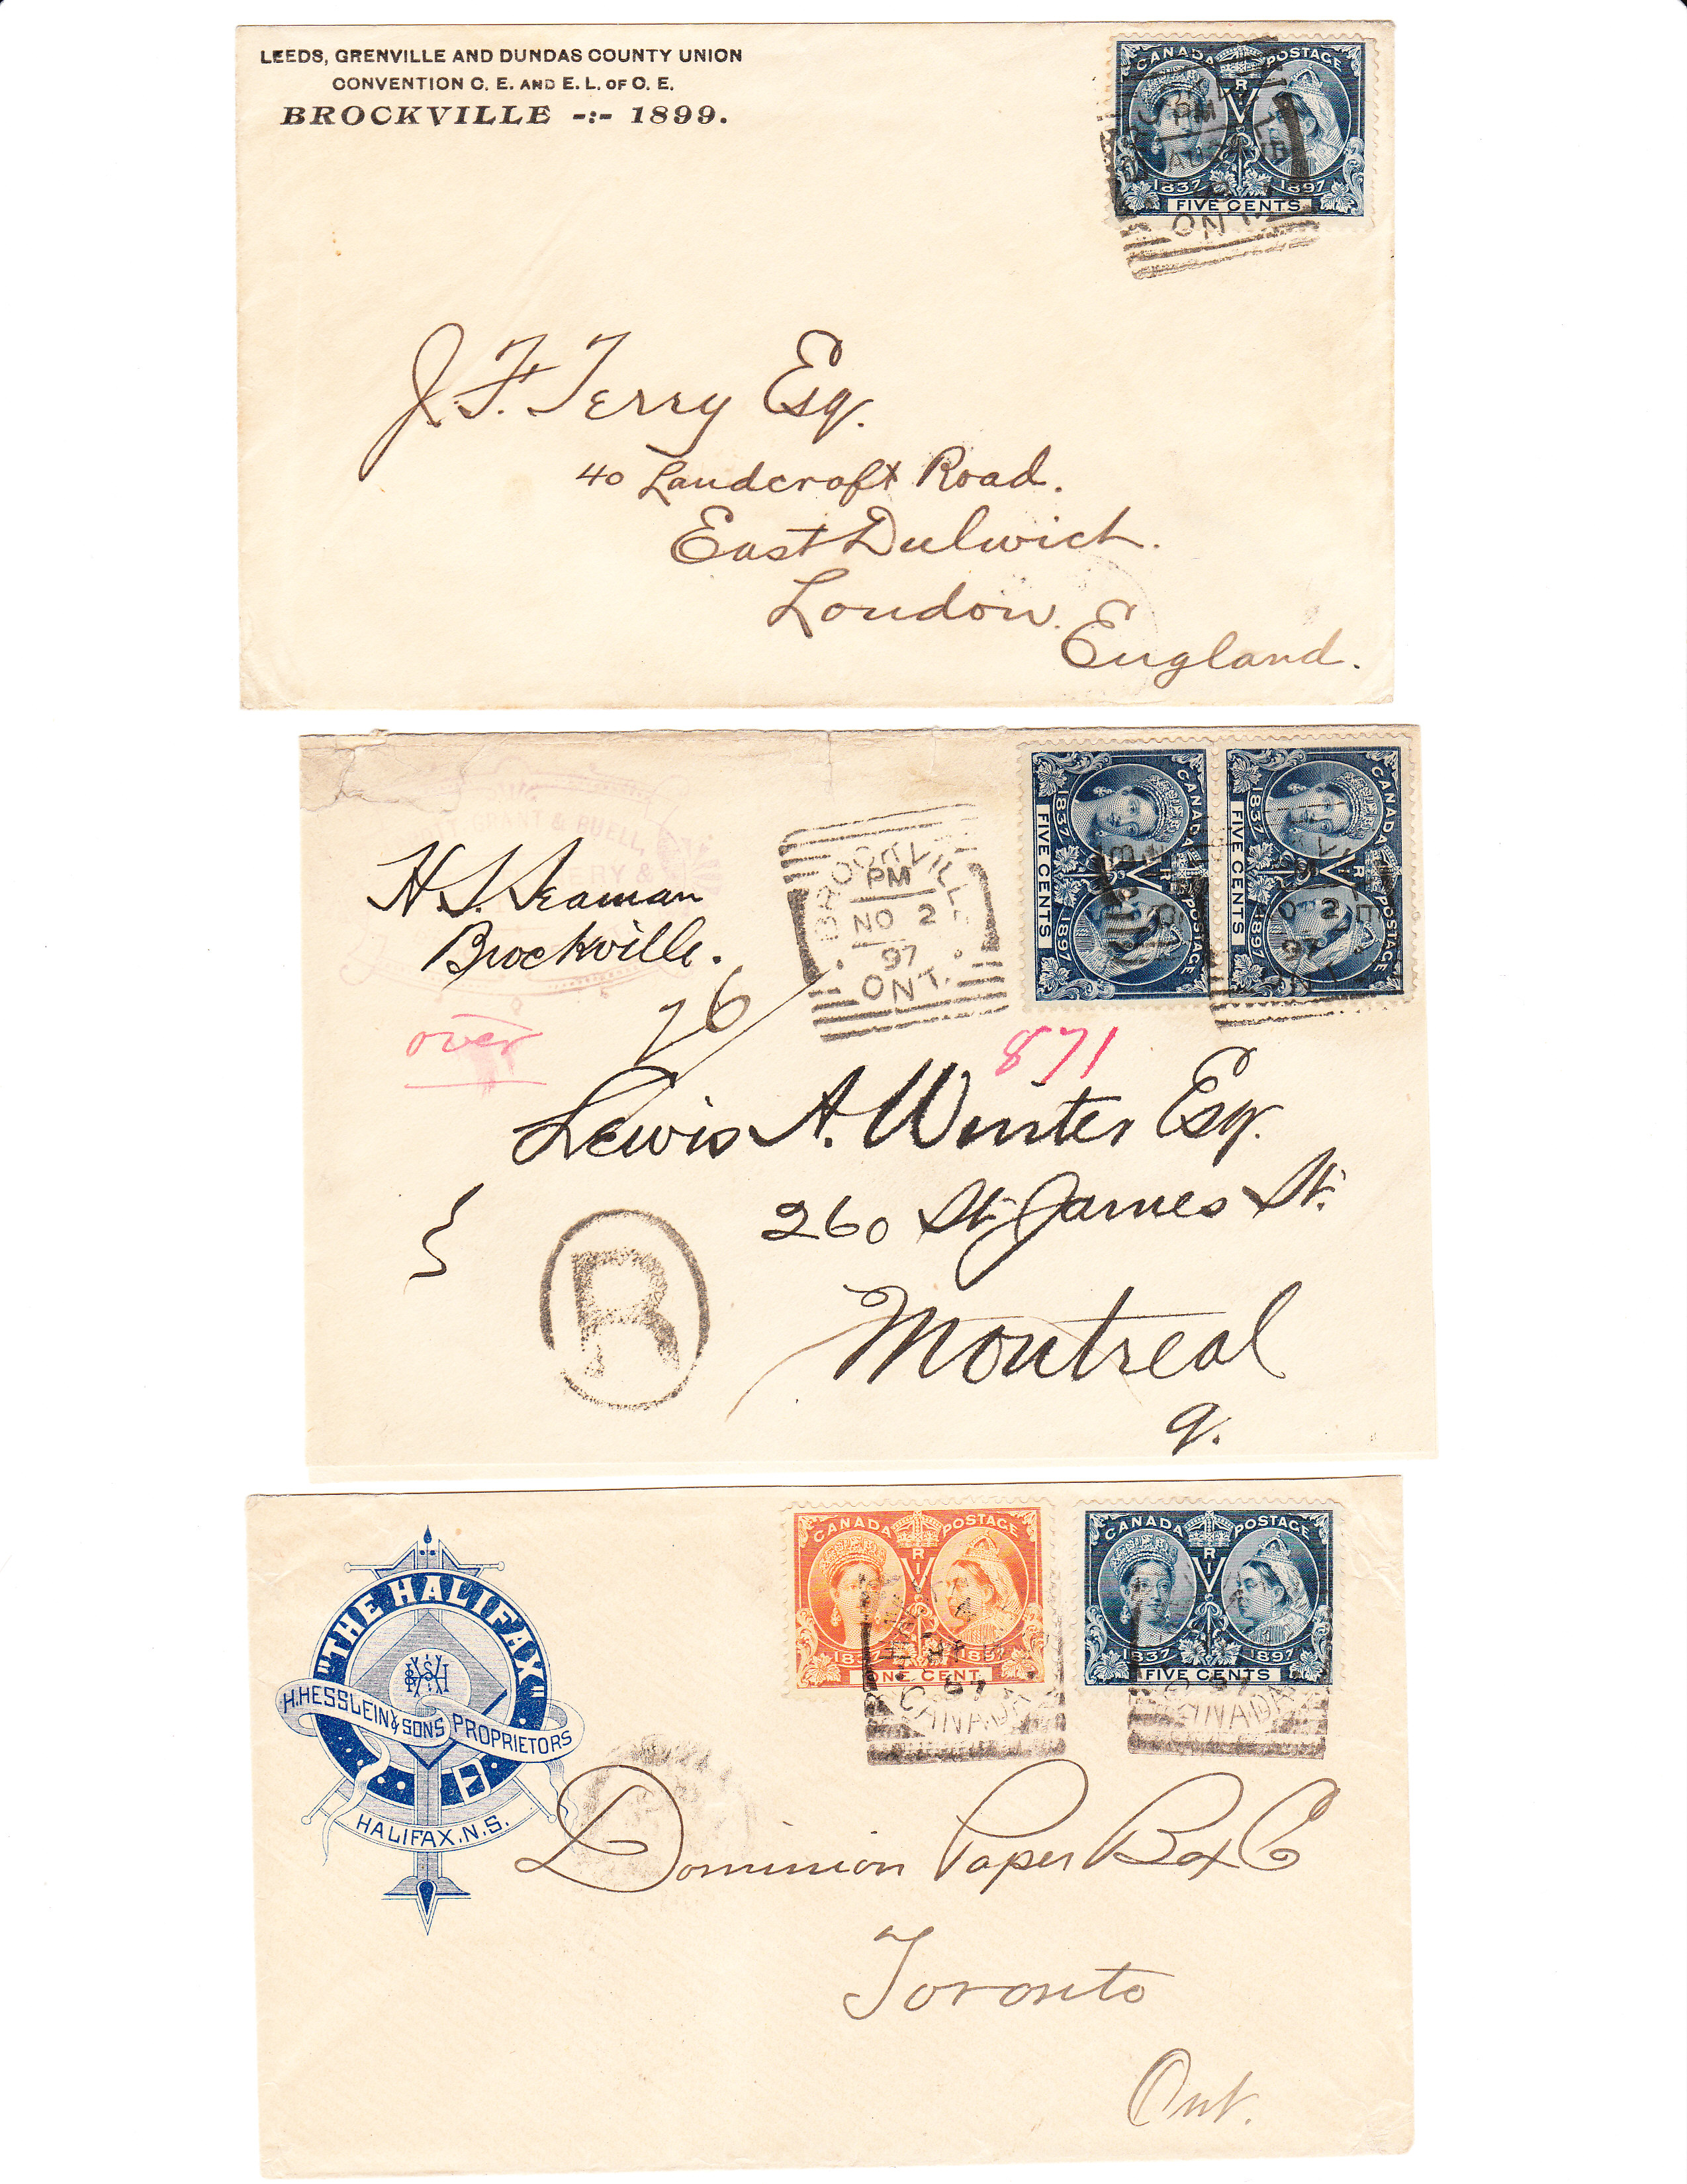 LEEDS, GRENVILLE AND DUNDAS COUNTY UNION
CONVENTION C. E. AND E. L. OF C. E.
BROCKVILLE -:- 1899.
CANADA POSTAGE
V R I
1837 1897
FIVE CENTS
PM
ONT.
J. F. Terry Esq.
40 Landcroft Road.
East Dulwich.
London.
England.
GRANT & BUELL,
H. S. Seaman
Brockville.
over
76
BROCKVILLE
PM
NO 2
97
ONT.
CANADA POSTAGE
V R I
1837 1897
FIVE CENTS
CANADA POSTAGE
V R I
1837 1897
FIVE CENTS
871
Lewis A. Winter Esq.
260 St. James St.
Montreal
Q.
R
"THE HALIFAX"
H. HESSLEIN & SONS PROPRIETORS
HALIFAX, N.S.
CANADA POSTAGE
V R I
1837 1897
ONE CENT
97
CANADA
CANADA POSTAGE
V R I
1837 1897
FIVE CENTS
97
CANADA
Dominion Paper Box Co
Toronto
Ont.